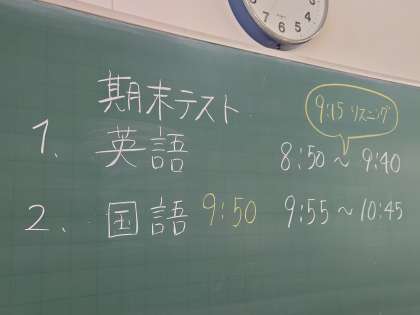 期末テスト
9:15 リスニング
1. 英語 8:50 ~ 9:40
2. 国語 9:50 9:55 ~ 10:45